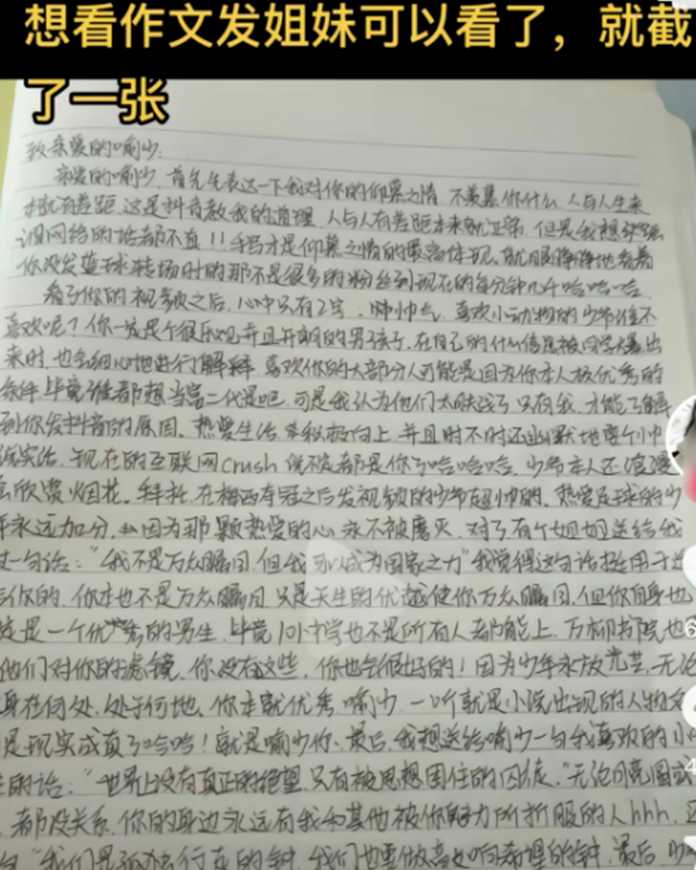 想看作文发姐妹可以看了，就截
了一张
致亲爱的喻少：
亲爱的喻少，首先先表达一下我对你的仰慕之情，不羡慕你什么，人与人生来
本就有差距，这是抖音教我的道理，人与人有差距本来就正常，但是我想
网络的话都不直！！手写才是仰慕之情的最高体现，就眼睁睁地看着
你没发篮球转场时的那不是很多的粉丝到现在的每分钟几千哈哈哈，
看了你的视频之后，心中只有2字，帅帅气，喜欢小动物的少年谁不
喜欢呢？你一定是个很乐观并且开朗的男孩子，在自己的什么信息被同学爆出
来时，也会细心地进行解释，喜欢你的大部分人可能是因为你本人极优秀的
条件，毕竟谁都想当富二代是吧，可是我认为他们太肤浅了，只有我，才能了解
到你发抖音的原因，热爱生活，积极向上，并且时不时还幽默地整个小
活，现在的互联网crush说不定都是你了哈哈哈，少年本人还浪漫
欣赏烟花，拜托，在梅西夺冠之后发视频的少年超帅的，热爱足球的少
年永远加分，因为那颗热爱的心永不被磨灭，对了有个姐姐送给我
过一句话：“我不是万众瞩目，但我可以成为国家之力”我觉得这句话挺用于
你的，你本也不是万众瞩目，只是天生的优越使你万众瞩目，但你自身也
是一个优秀的男生，毕竟101中学也不是所有人都能上，万柳书院也
他们对你的滤镜，你没有这些，你也会很好的！因为少年永放光芒，无论
身在何处，处于何地，你本就优秀，喻少，一听就是小说出现的人物
是现实成真了哈哈！就是喻少你，最后，我想送给喻少一句我喜欢的小
的话：“世界上没有真正的绝望，只有被思想困住的囚徒，”无论
，都没关系，你的身边永远有我和其他被你魅力所折服的人hhh，
“我们是孤独行走的钟，我们也要做高处响希望的钟，最后，